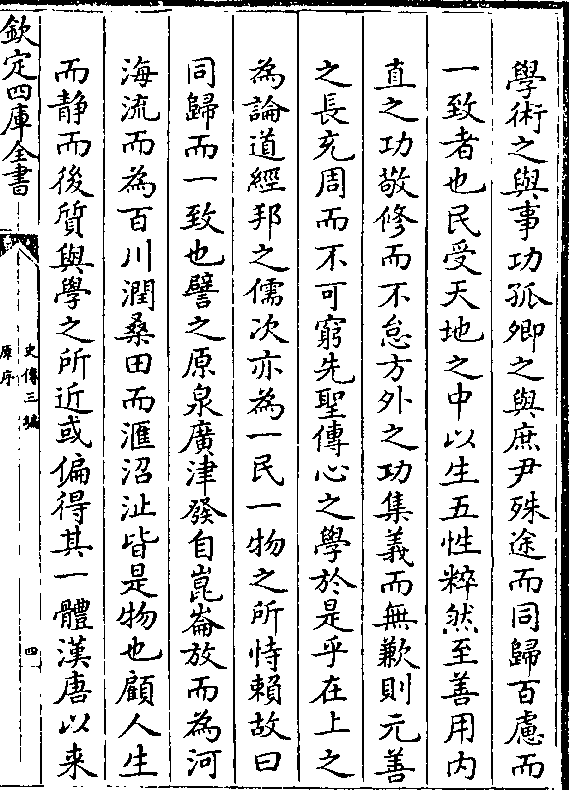 學術之與事功孤卿之與庶尹殊途而同歸百慮而
一致者也民受天地之中以生五性粹然至善用内
直之功敬修而不怠方外之功集義而無歉則元善
之長充周而不可窮先聖傳心之學於是乎在上之
為論道經邦之儒次亦為一民一物之所恃賴故曰
同歸而一致也譬之原泉廣津發自崑崙放而為河
海流而為百川潤桑田而滙沼沚皆是物也顧人生
而静而後質與學之所近或偏得其一體漢唐以来
欽定四庫全書
史傳三編
原序
四